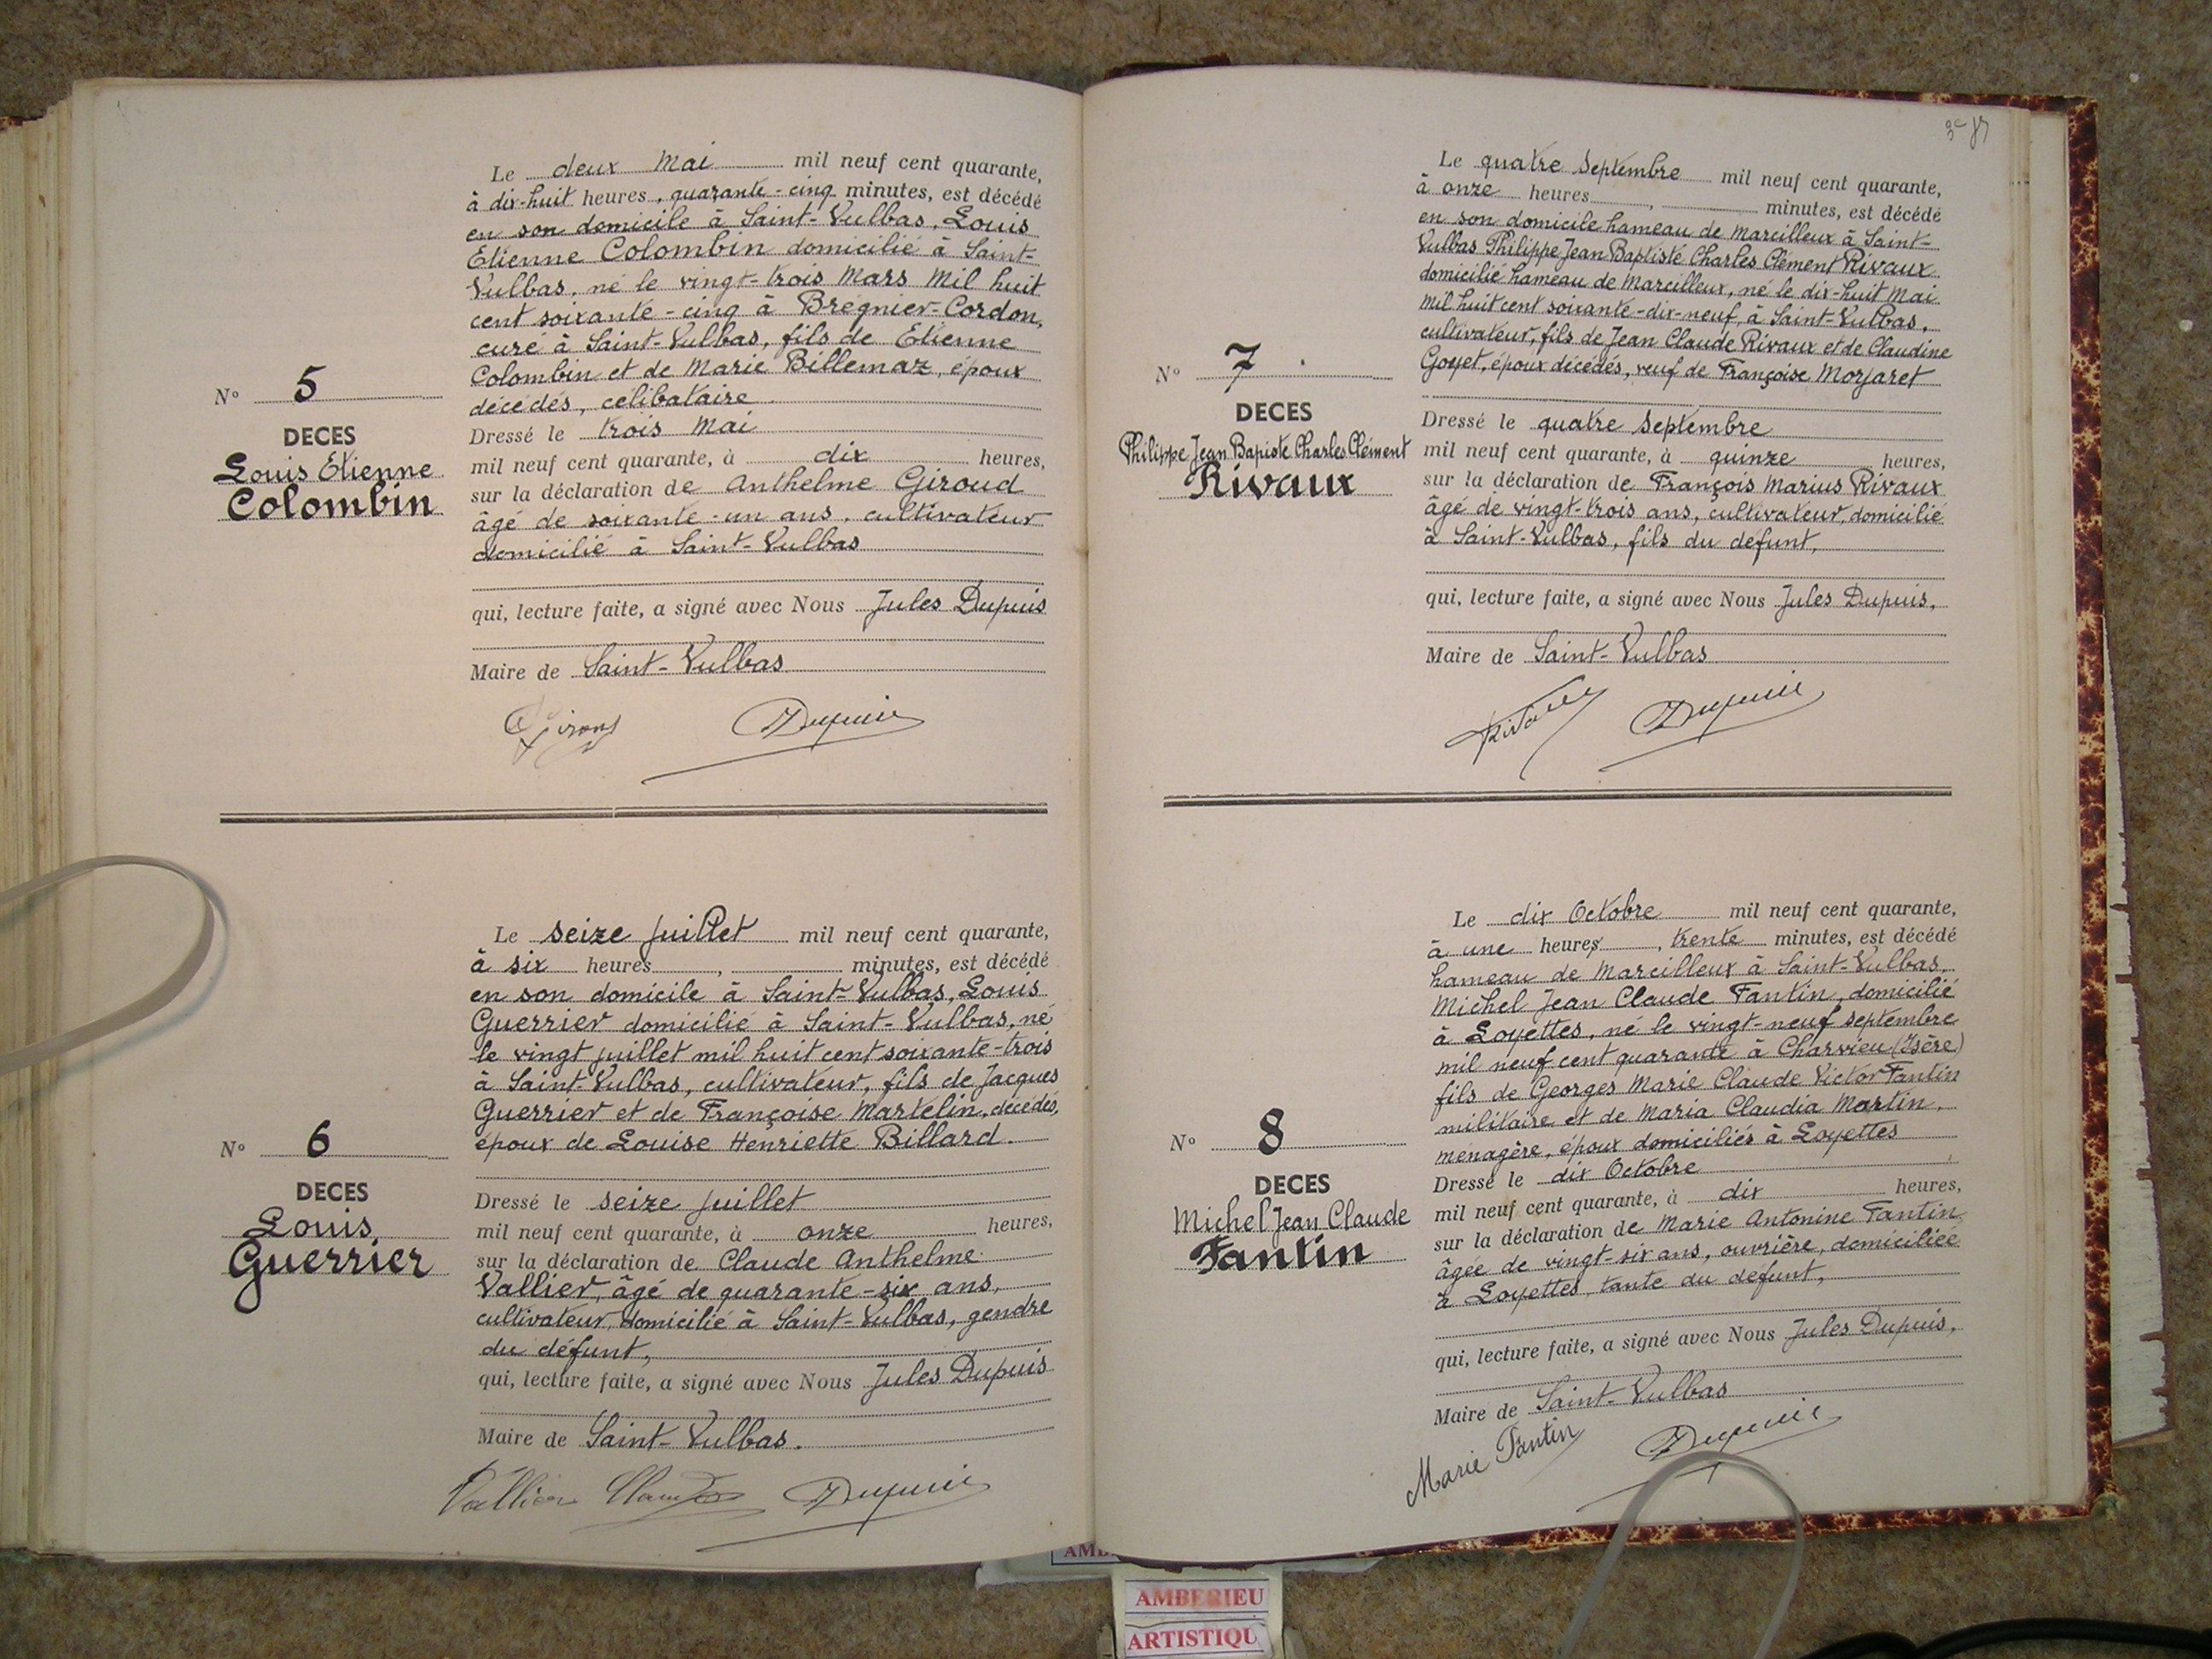 Le deux Mai mil neuf cent quarante,
à dix-huit heures, quarante-cinq minutes, est décédé
en son domicile à Saint-Vulbas, Louis
Etienne Colombin domicilié à Saint-
Vulbas, né le vingt-trois Mars mil huit
cent soixante-cinq à Bregnier-Cordon,
curé à Saint-Vulbas, fils de Etienne
Colombin et de Marie Billemaz, époux
décédés, célibataire.
N° 5
DECES
Louis Etienne
Colombin
Dressé le trois Mai
mil neuf cent quarante, à dix heures,
sur la déclaration de Anthelme Giroud
âgé de soixante-un ans, cultivateur
domicilié à Saint-Vulbas
qui, lecture faite, a signé avec Nous Jules Dupuis
Maire de Saint-Vulbas
Giroud Dupuis
Le seize juillet mil neuf cent quarante,
à six heures, minutes, est décédé
en son domicile à Saint-Vulbas, Louis
Guerrier domicilié à Saint-Vulbas, né
le vingt juillet mil huit cent soixante-trois
à Saint-Vulbas, cultivateur, fils de Jacques
Guerrier et de Françoise Martelin, décédés,
époux de Louise Henriette Billard.
N° 6
DECES
Louis
Guerrier
Dressé le seize juillet
mil neuf cent quarante, à onze heures,
sur la déclaration de Claude Anthelme
Vallier, âgé de quarante-six ans,
cultivateur, domicilié à Saint-Vulbas, gendre
du défunt,
qui, lecture faite, a signé avec Nous Jules Dupuis
Maire de Saint-Vulbas.
Vallier Claude Dupuis
Le quatre Septembre mil neuf cent quarante,
à onze heures, minutes, est décédé
en son domicile hameau de Marcilleux à Saint-
Vulbas Philippe Jean Baptiste Charles Clément Rivaux
domicilié hameau de Marcilleux, né le dix-huit Mai
mil huit cent soixante-dix-neuf, à Saint-Vulbas,
cultivateur, fils de Jean Claude Rivaux et de Claudine
Goyet, époux décédés, veuf de Françoise Morjaret
N° 7
DECES
Philippe Jean Bapiste Charles Clément
Rivaux
Dressé le quatre Septembre
mil neuf cent quarante, à quinze heures,
sur la déclaration de François Marius Rivaux
âgé de vingt-trois ans, cultivateur, domicilié
à Saint-Vulbas, fils du defunt,
qui, lecture faite, a signé avec Nous Jules Dupuis,
Maire de Saint-Vulbas
Rivaux Dupuis
Le dix Octobre mil neuf cent quarante,
à une heures, trente minutes, est décédé
hameau de Marcilleux à Saint-Vulbas,
Michel Jean Claude Fantin, domicilié
à Loyettes, né le vingt-neuf septembre
mil neuf cent quarante à Charvieu (Isère)
fils de Georges Marie Claude Victor Fantin
militaire et de Maria Claudia Martin,
menagère, époux domiciliés à Loyettes
N° 8
DECES
Michel Jean Claude
Fantin
Dressé le dix Octobre
mil neuf cent quarante, à dix heures,
sur la déclaration de Marie Antonine Fantin
âgée de vingt-six ans, ouvrière, domiciliée
à Loyettes, tante du defunt,
qui, lecture faite, a signé avec Nous Jules Dupuis,
Maire de Saint-Vulbas
Marie Fantin Dupuis
AMBERIEU
ARTISTIQU